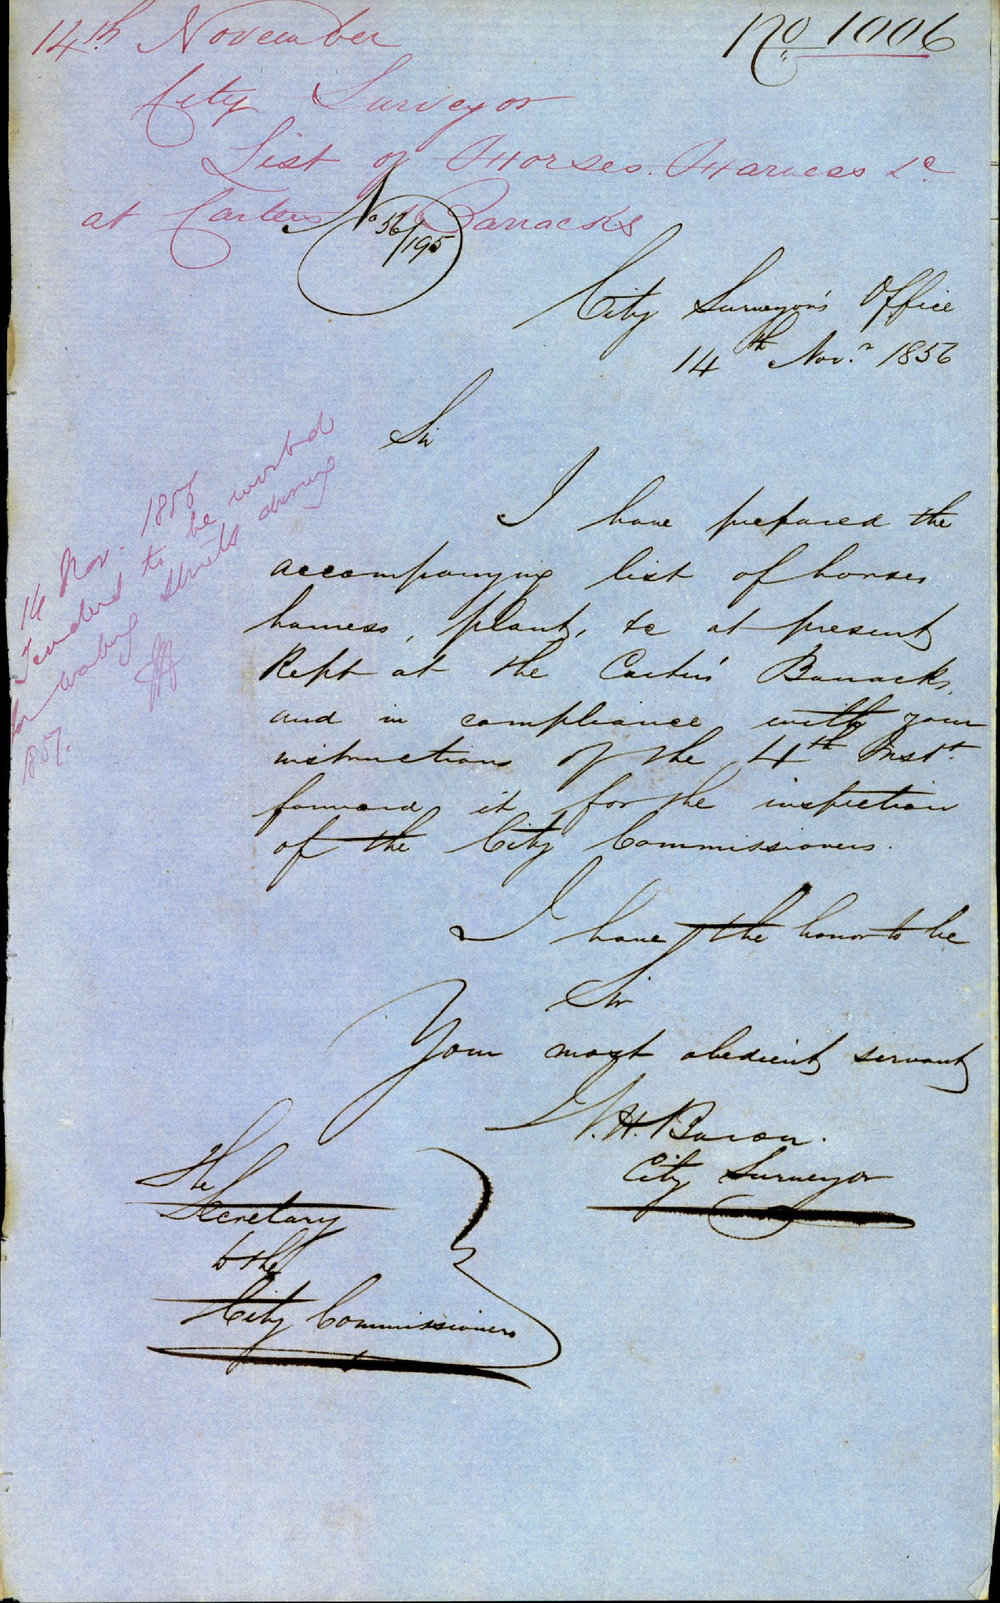 14th November
No. 1006
City Surveyor
List of Horses. Harness &c
at Carters Barracks
No 56/195
City Surveyor's Office
14th Novr 1856
Sir
I have prepared the
accompanying list of horses
harness, plant, &c at present
kept at the Carters' Barracks,
and in compliance with your
instructions of the 4th Inst.
forward it for the inspection
of the City Commissioners.
I have the honor to be
Sir
Your most obedient servant
City Surveyor
The
Secretary
to the
City Commissioners
14 Nov. 1856
Tenders to be invited
for watering streets during
1857.